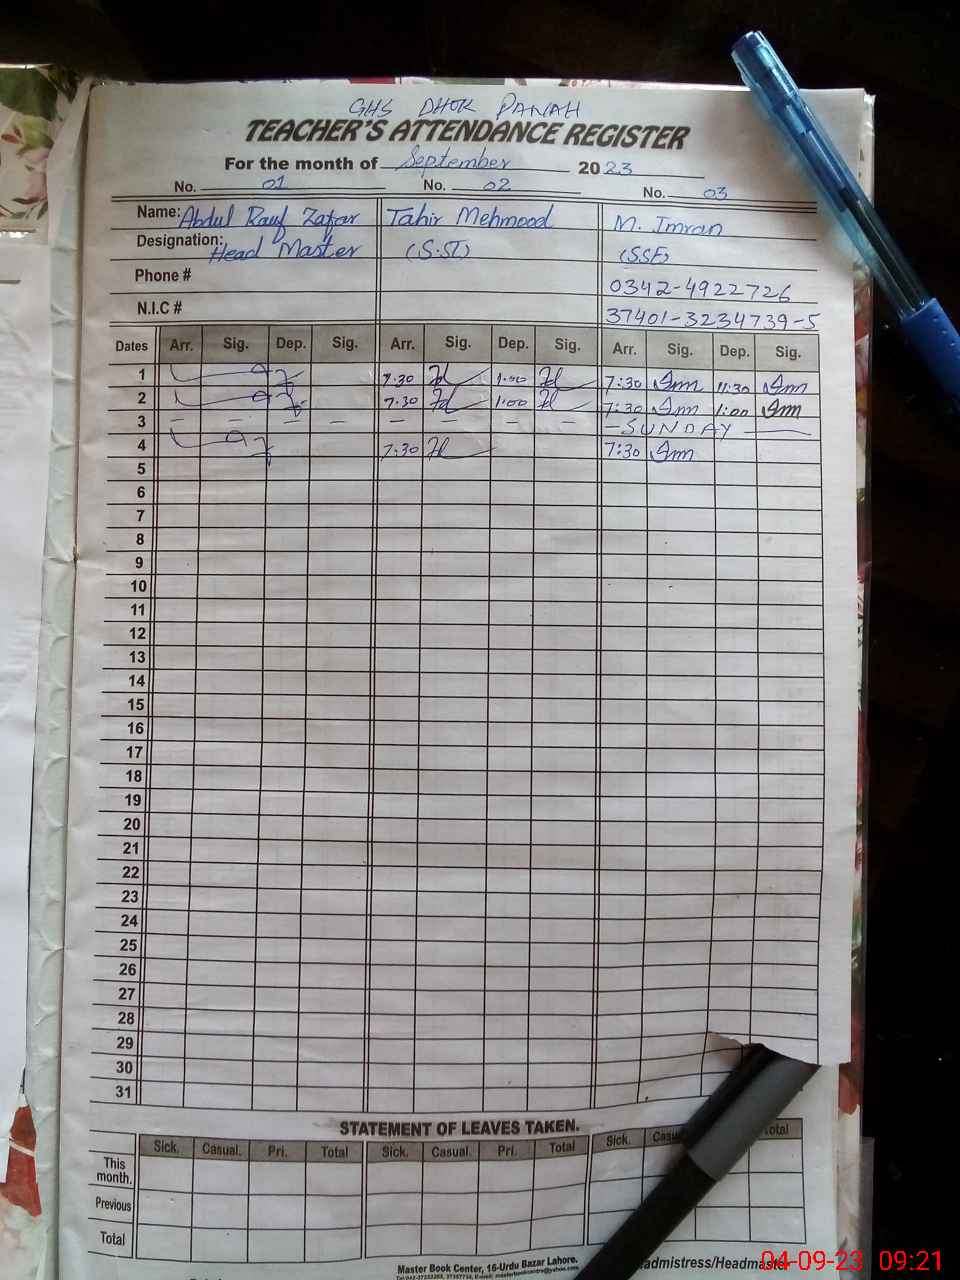 GHS DHOK PANAH
TEACHER'S ATTENDANCE REGISTER
For the month of September 2023
No. 01 No. 02 No. 03
Name: Abdul Rauf Zafar Tahir Mehmood M. Imran
Designation: Head Master (S.ST) (SSE)
Phone # 0342-4922726
N.I.C # 37401-3234739-5
Dates Arr. Sig. Dep. Sig. Arr. Sig. Dep. Sig. Arr. Sig. Dep. Sig.
1 7:30 1:00 7:30 Imn 11:30 Imn
2 7:30 1:00 7:30 Imn 1:00 Imn
3 — — — — — — — — — SUNDAY —
4 7:30 7:30 Imn
5
6
7
8
9
10
11
12
13
14
15
16
17
18
19
20
21
22
23
24
25
26
27
28
29
30
31
STATEMENT OF LEAVES TAKEN.
Sick. Casual. Pri. Total Sick. Casual. Pri. Total Sick. Total
This month.
Previous
Total
Master Book Center, 16-Urdu Bazar Lahore.
admistress/Headmaster
04-09-23 09:21